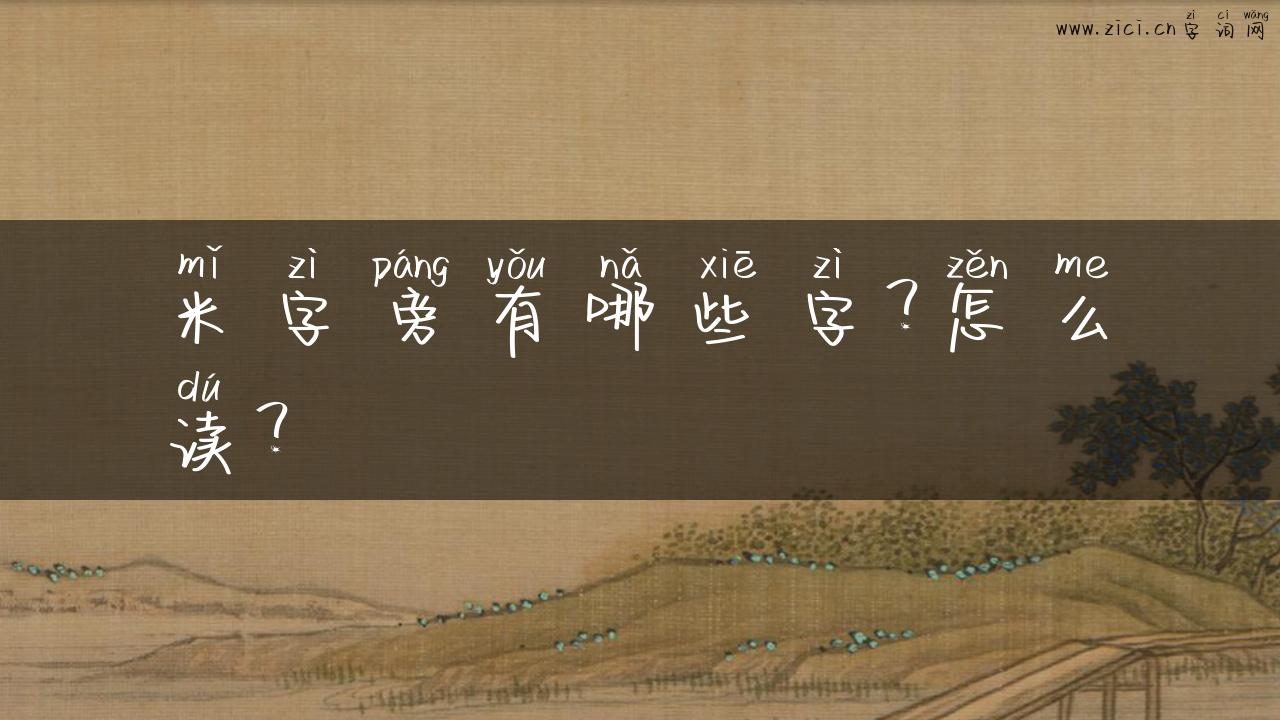 zì cí wǎng
www.zici.cn 字词网
mǐ zì páng yǒu nǎ xiē zì zěn me
米字旁有哪些字？怎么
dú
读？